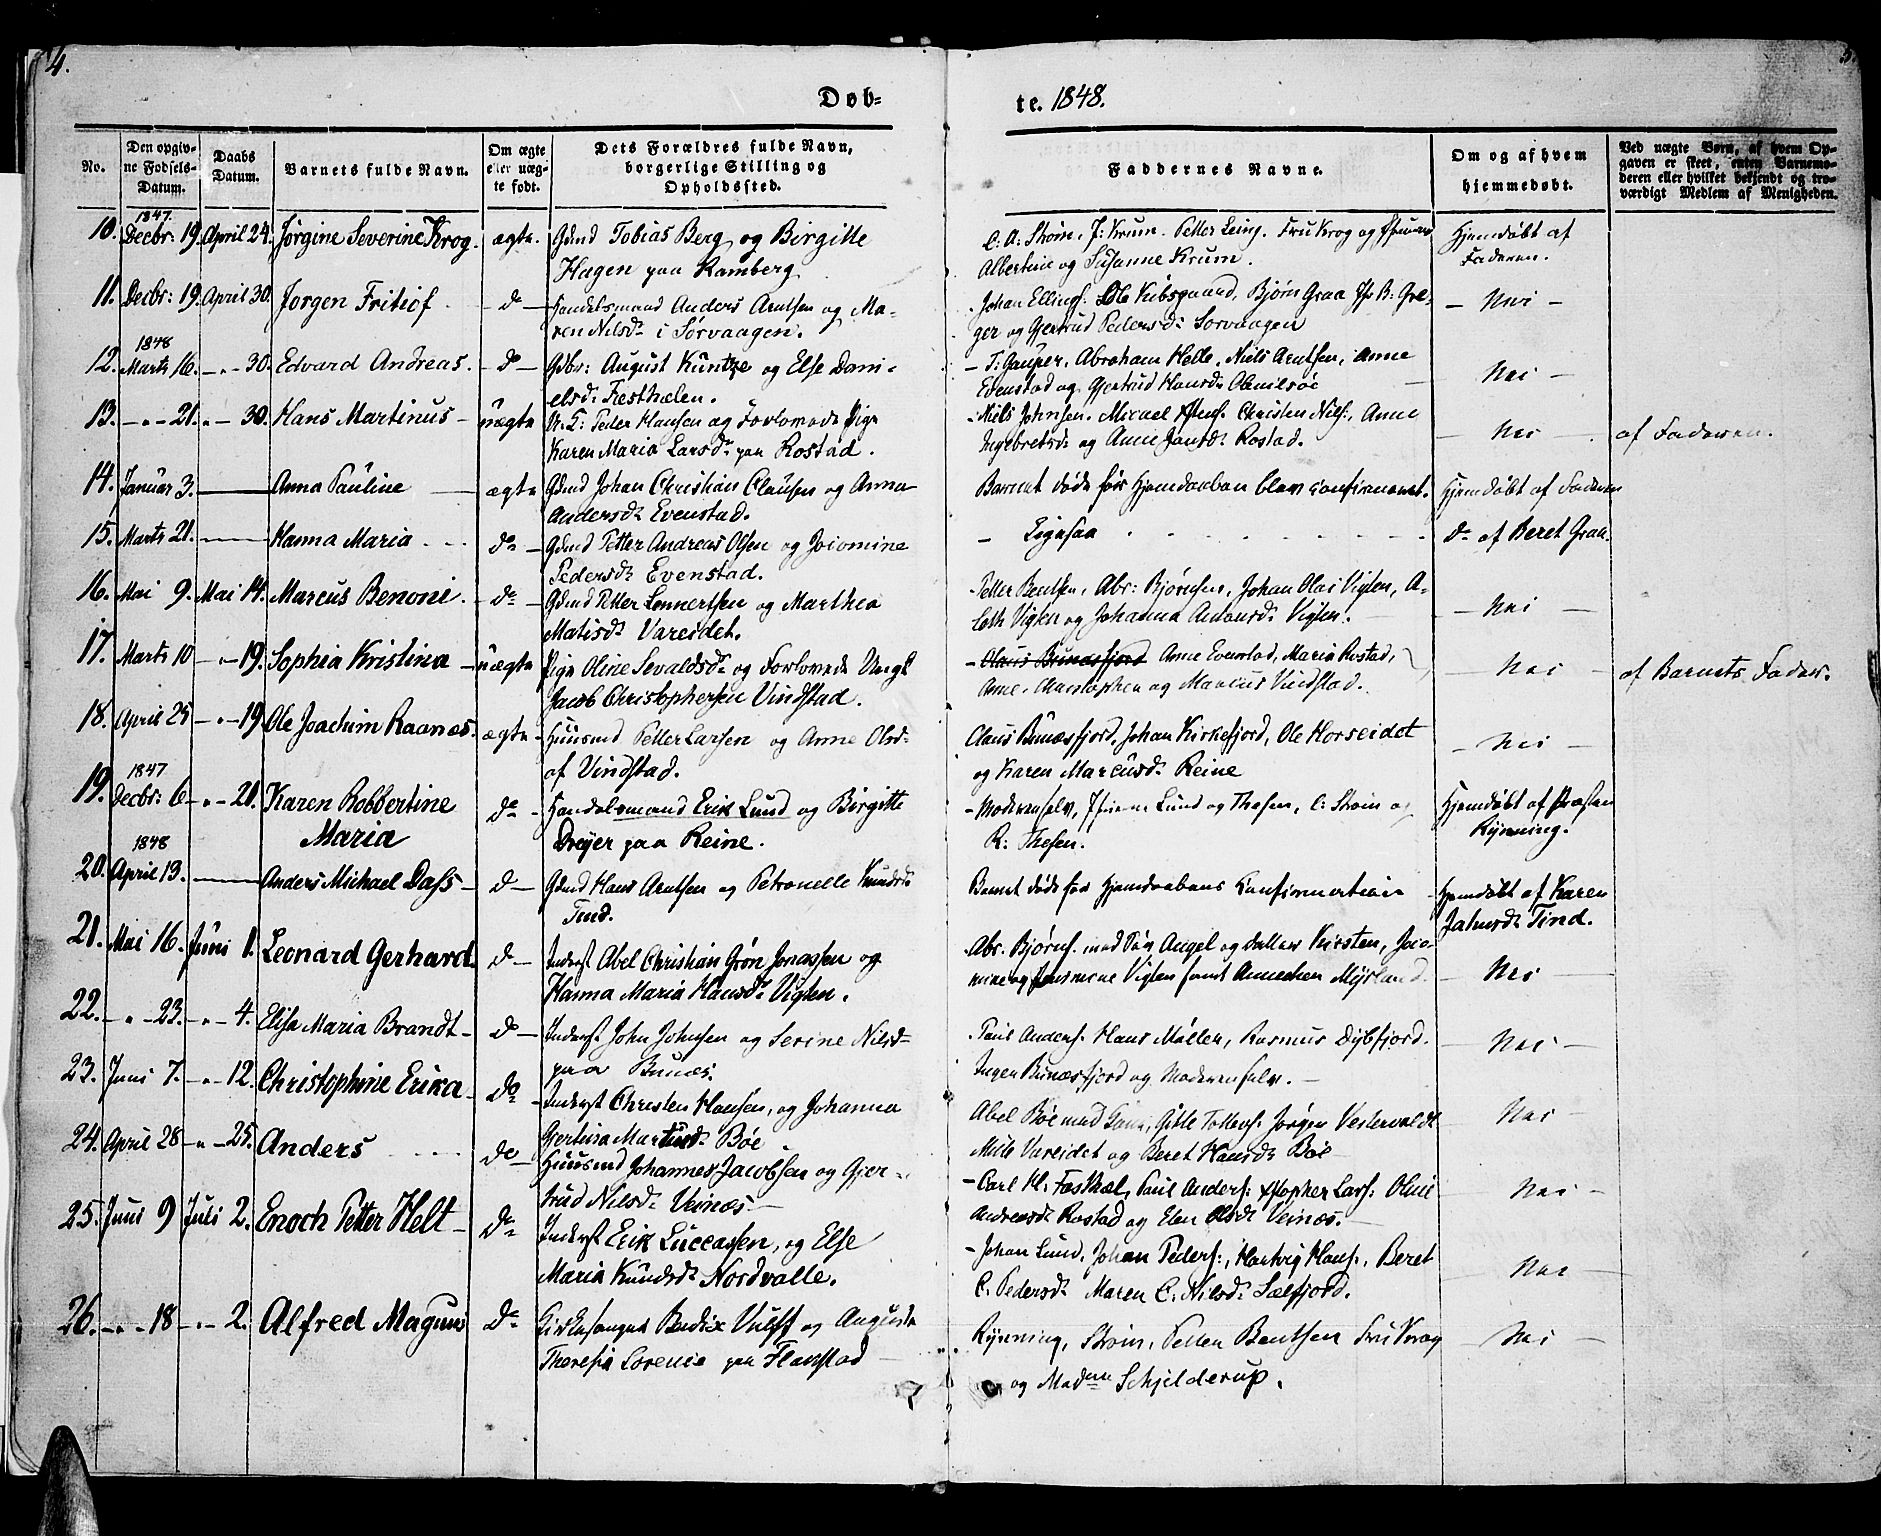 4.
5.
Døb-
te. 1848.
No.
Den opgiv-
ne Fødsels-
Datum.
Daabs
Datum.
Barnets fulde Navn.
Om ægte
eller uæg-
te født.
Dets Forældres fulde Navn,
borgerlige Stilling og
Opholdssted.
Faddernes Navne.
Om og af hvem
hjemmedøbt.
Ved uægte Børn, af hvem Op-
gaven er skeet, enten Barnemo-
deren eller hvilket bekjendt og tro-
værdigt Medlem af Menigheden.
1847.
10. Decbr. 19. April 24. Jørgine Severine Krog. ægte. Gdmd Tobias Berg og Birgitte
Hagen paa Ramberg
C. A. Strøm. J: Krum. Petter Leing. Fru Krog og
Albertine og Susanne Krum.
Hjemdøbt af
Faderen.
11. Decbr: 19. April 30. Jørgen Fritiof - do - Handelsmand Anders Arntsen og Ma-
ren Nilsdr i Sørvaagen.
Johan Ellingf: Ole Kibsgaard, Bjørn Graa B: Gre-
ger og Gjertrud Pedersdr Sorvaagen
- Nei -
1848
12. Marts 16. - " - 30. Edvard Andreas. - do - Gdbr: August Kuntze og Else Dani-
elsdr Festhælen.
- T: Gauper, Abraham Helle, Niels Arntsen, Anne
Evenstad og Gjertrud Hansdr
Nei -
13. - " - 21. " - 30. Hans Martinus - uægte U. K: Peder Hansen og Forlovede Pige
Karen Maria Larsdr paa Rostad.
- Niels Johnsen. Micael Christen Nilf:, Anne
Ingebretsdr og Anne Jansdr Rostad.
- Nei -
af Faderen.
14. Januar 3. Anna Pauline - ægte Gdmd Johan Christian Clausen og Anna
Andersdr Evenstad.
Barnet døde før Hjemdaaben blev confirmeret.
Hjemdøbt af Faderen
15. Marts 21. Hanna Maria - do - Gdmd Petter Andreas Olsen og Jocomine
Pedersdr Evenstad.
- Ligesaa
do af Beret Graa.
16. Mai 9. Mai 14. Marcus Benoni. - do - Gdmd Petter Lennertsen og Marthea
Matisdr Vareidet.
- Petter Bentsen, Abr: Bjørnsen, Johan Olai Vigten, A-
leth Vigten og Johanna Vigten.
- Nei -
17. Marts 10 - " - 19. Sophia Kristina - uægte Pige Oline Sevaldsdr og Forlovede Ungk
Jacob Christophersen Vindstad.
- Claus Bunæsfjord Anne Evenstad, Maria Rostad,
Anne Christophen og Marcus Vindstad.
- Nei -
af Barnets Fader.
18. April 25 - " - 19. Ole Joachim Raanes. ægte - Huusmd Petter Larsen og Anne Olsdr
af Vindstad.
Claus Bunæsfjord, Johan Kirkefjord, Ole Horseidet
og Karen Marcusdr Reine
- Nei -
1847
19. Decbr: 6 - " - 21. Karen Robbertine
Maria
do - Handelsmand Erik Lund og Birgitte
Dreyer paa Reine.
- Moderen selv, Lund og Thesen, C: Strøm og
R: Thesen.
Hjemdøbt af Præsten
Rynning.
1848
20. April 13. Anders Michael Dass - do - Gdmd Hans Arntsen og Petronelle Knudsdr
Tind.
Barnet døde før Hjemdaabens Confirmation
Hjemdøbt af Karen
Jahnsdr Tind.
21. Mai 16. Juni 1. Leonard Gerhard. do - Inderst Abel Christian Grøn Jonassen og
Hanna Maria Hansdr Vigten.
Abr. Bjørnf. med Søn Angel og datter Kirsten, Joco-
mine og Vigten samt Annechen Myrland.
- Nei -
22. - " - 23. - " - 4. Elisa Maria Brandt - do - Inderst John Johnsen og Serine Nilsdr
paa Bunes.
- Paul Anderf. Hans Møller, Rasmus Dybfjord.
Inger Bunæsfjord og Moderen selv. -
- Nei -
23. Juni 7. - " - 12. Christophine Erica - do - Inderst Christen Hansen, og Johanna
Gertina Martinsdr Bøe
Abel Bøe med Gitte Tollefsf. Jørgen Vestervaldt
Mile Vareidet og Beret Hansdr Bøe
- Nei -
24. April 28 - " - 25. Anders do - Huusmd Johannes Jacobsen og Gjer-
trud Nilsdr Veinæs -
- Carl H. Paul Anderf: Larf: Oline
Andreasdr Rostad og Elen Olsdr Veinæs. -
- Nei -
25. Juni 9 Juli 2. Enoch Petter Helt - do Inderst Erik Luccassen, og Else
Maria Knudsdr Nordvalle.
- Johan Lund, Johan Pederf:, Hartvig Hansf., Beret
C. Pedersdr Maren C. Nilsdr Sælfjord.
- Nei -
26. - " - 18 - " - 2. Alfred Magnus do Kirkesanger Bendix Vulff og Augusta
Theresia Sørenia paa Flagstad -
Rynning, Strøm, Petter Bentsen Fru Krog
og Madme Schjelderup.
- Nei -